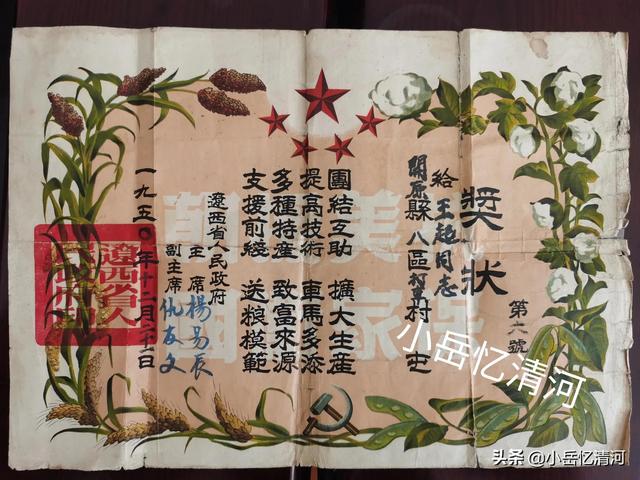 獎狀
第六號
給王超同志
開原縣八區村屯
團結互助 擴大生產
提高技術 車馬多添
多種特產 致富來源
支援前綫 送粮模範
遼西省人民政府
主席 楊易辰
副主席 仇友文
一九五〇年十二月二十二日
遼西省人民政府印
美朝
保家國
小岳忆清河
头条 @小岳忆清河